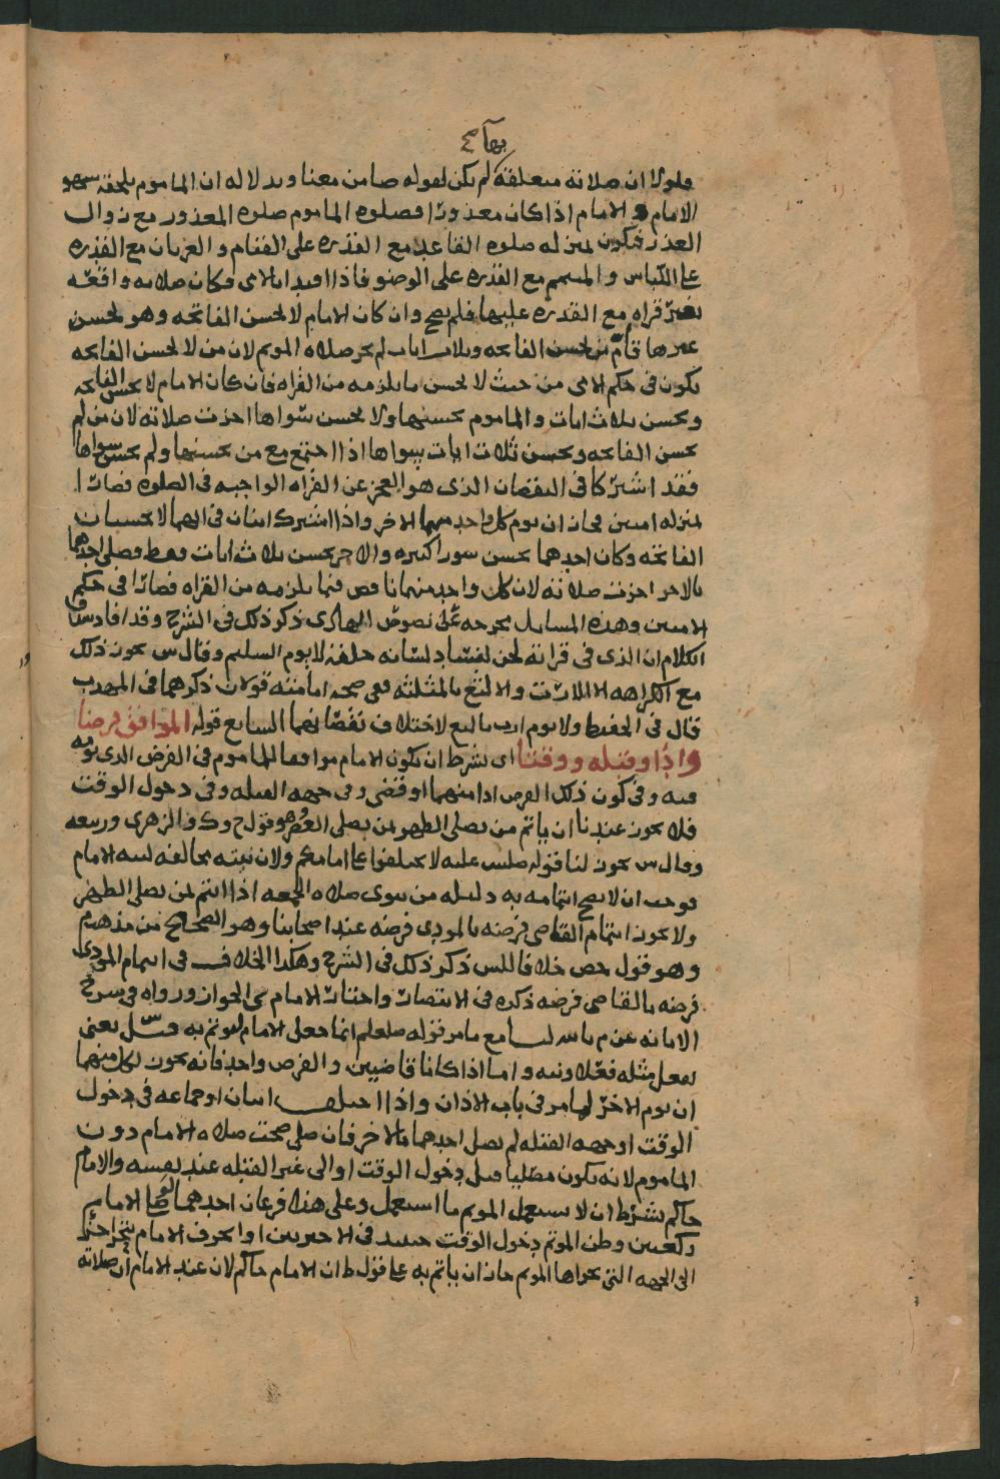 بها صح
فلولا ان صلاته متعلقة لم يكن لقوله ضامن معنا وبدلاله ان الماموم يلحقه سهو
الامام و الامام اذا كان معذورا فصلوه الماموم صلوه المعذور مع زوال
العذر فيكون بمنزله صلوه القاعد مع القدره على القيام و العريان مع القدره
على اللباس و المتيمم مع القدره على الوضو فاذا اقتدا بالامى فكان صلاته واقعه
بغير قراه مع القدره عليها فلم يصح وان كان الامام لا يحسن الفاتحه وهو يحسن
غيرها فأم من يحسن الفاتحه وثلاث ايات لم يجز صلاه الموتم لان من لا يحسن الفاتحه
يكون فى حكم الامى من حيث لا يحسن ما يلزمه من القراه فان كان الامام لا يحسن الفاتحه
ويحسن ثلاث ايات و الماموم يحسنها ولا يحسن سواها اجزت صلاته لان من لم
يحسن الفاتحه ويحسن ثلاث ايات سواها اذا اجتمع مع من يحسنها ولم يحسن سواها
فقد اشتركا فى النقصان الذى هو العجز عن القراه الواجبه فى الصلوه فصارا
بمنزله اميين فجاز ان يوم كل واحد منهما الاخر واذا اشترك اثنان فى انهما لا يحسنان
الفاتحه وكان احدهما يحسن سورا كثيره والاخر يحسن ثلاث ايات فقط فصلى احدهما
بالاخر اجزت صلاته لان كل واحد منهما ناقص فيما يلزمه من القراه فصارا فى حكم
الاميين وهذه المسايل مخرجه على نصوص الهادى ذكر ذلك فى الشرح وقد افاد سياق
الكلام ان الذى فى قراته لحن لفساد لسانه خلفه لا يوم السليم وقال س يجوز ذلك
مع الكراهه الا الارت والالثغ بالمثلثه ففى صحه امامته قولان ذكرهما فى المهذب
قال فى الحفيظ ولا يوم ارت بالثغ لاختلاف نقصانهما السابع قوله الموافق فرضا
واذا وقبله ووقتا اى بشرط ان يكون الامام موافقا للماموم فى الفرض الذى نوته
فيه وفى كون ذلك الفرض ادا منهما او قضى وفى جهه القبله وفى دخول الوقت
فلا يجوز عندنا ان ياتم من يصلى الظهر بمن يصلى العصر وهو قول ح وك والزهرى وربيعه
وقال س يجوز لنا قوله صلى عليه لا تختلفوا على امامكم ولان نيته مخالفه لنيه الامام
فوجب ان لا يصح ائتمامه به دليله من نوى صلاه الجمعه اذا ائتم بمن يصلى الظهر
ولا يجوز ائتمام القاضى فرضه بالمودى فرضه عند اصحابنا وهو الصحيح من مذهبهم
وهو قول حص خلافا لش ذكر ذلك فى الشرح وهكذا الخلاف فى ائتمام المودى
فرضه بالقاضى فرضه ذكره فى الانتصار واختار الامام ى الجواز ورواه فى سرح
الابانه عن م بالله لنا مع ما مر قوله صلعم انما جعل الامام ليوتم به قيل يعنى
يفعل مثله فعلا ونيه و اما اذا كانا قاضيين و الفرض واحد فانه يجوز لكل منهما
ان يوم الاخر لما مر فى باب الاذان و اذا اختلف اثنان او جماعه فى دخول
الوقت او جهه القبله لم يصل احدهما بالاخر فان صلى صحت صلاه الامام دون
الماموم لانه يكون مصليا قبل دخول الوقت او الى غير القبله عند نفسه والامام
حاكم بشرط ان لا يستعمل الموتم ما استعمل وعلى هذا فرعان احدهما لو صلى الامام
ركعتين وظن الموتم دخول الوقت حينئذ فى الاخيرتين او انحرف الامام بتحر اخر
الى الجهه التى تحراها الموتم جاز ان ياتم به على قول ط ان الامام حاكم لان عند الامام ان صلاته